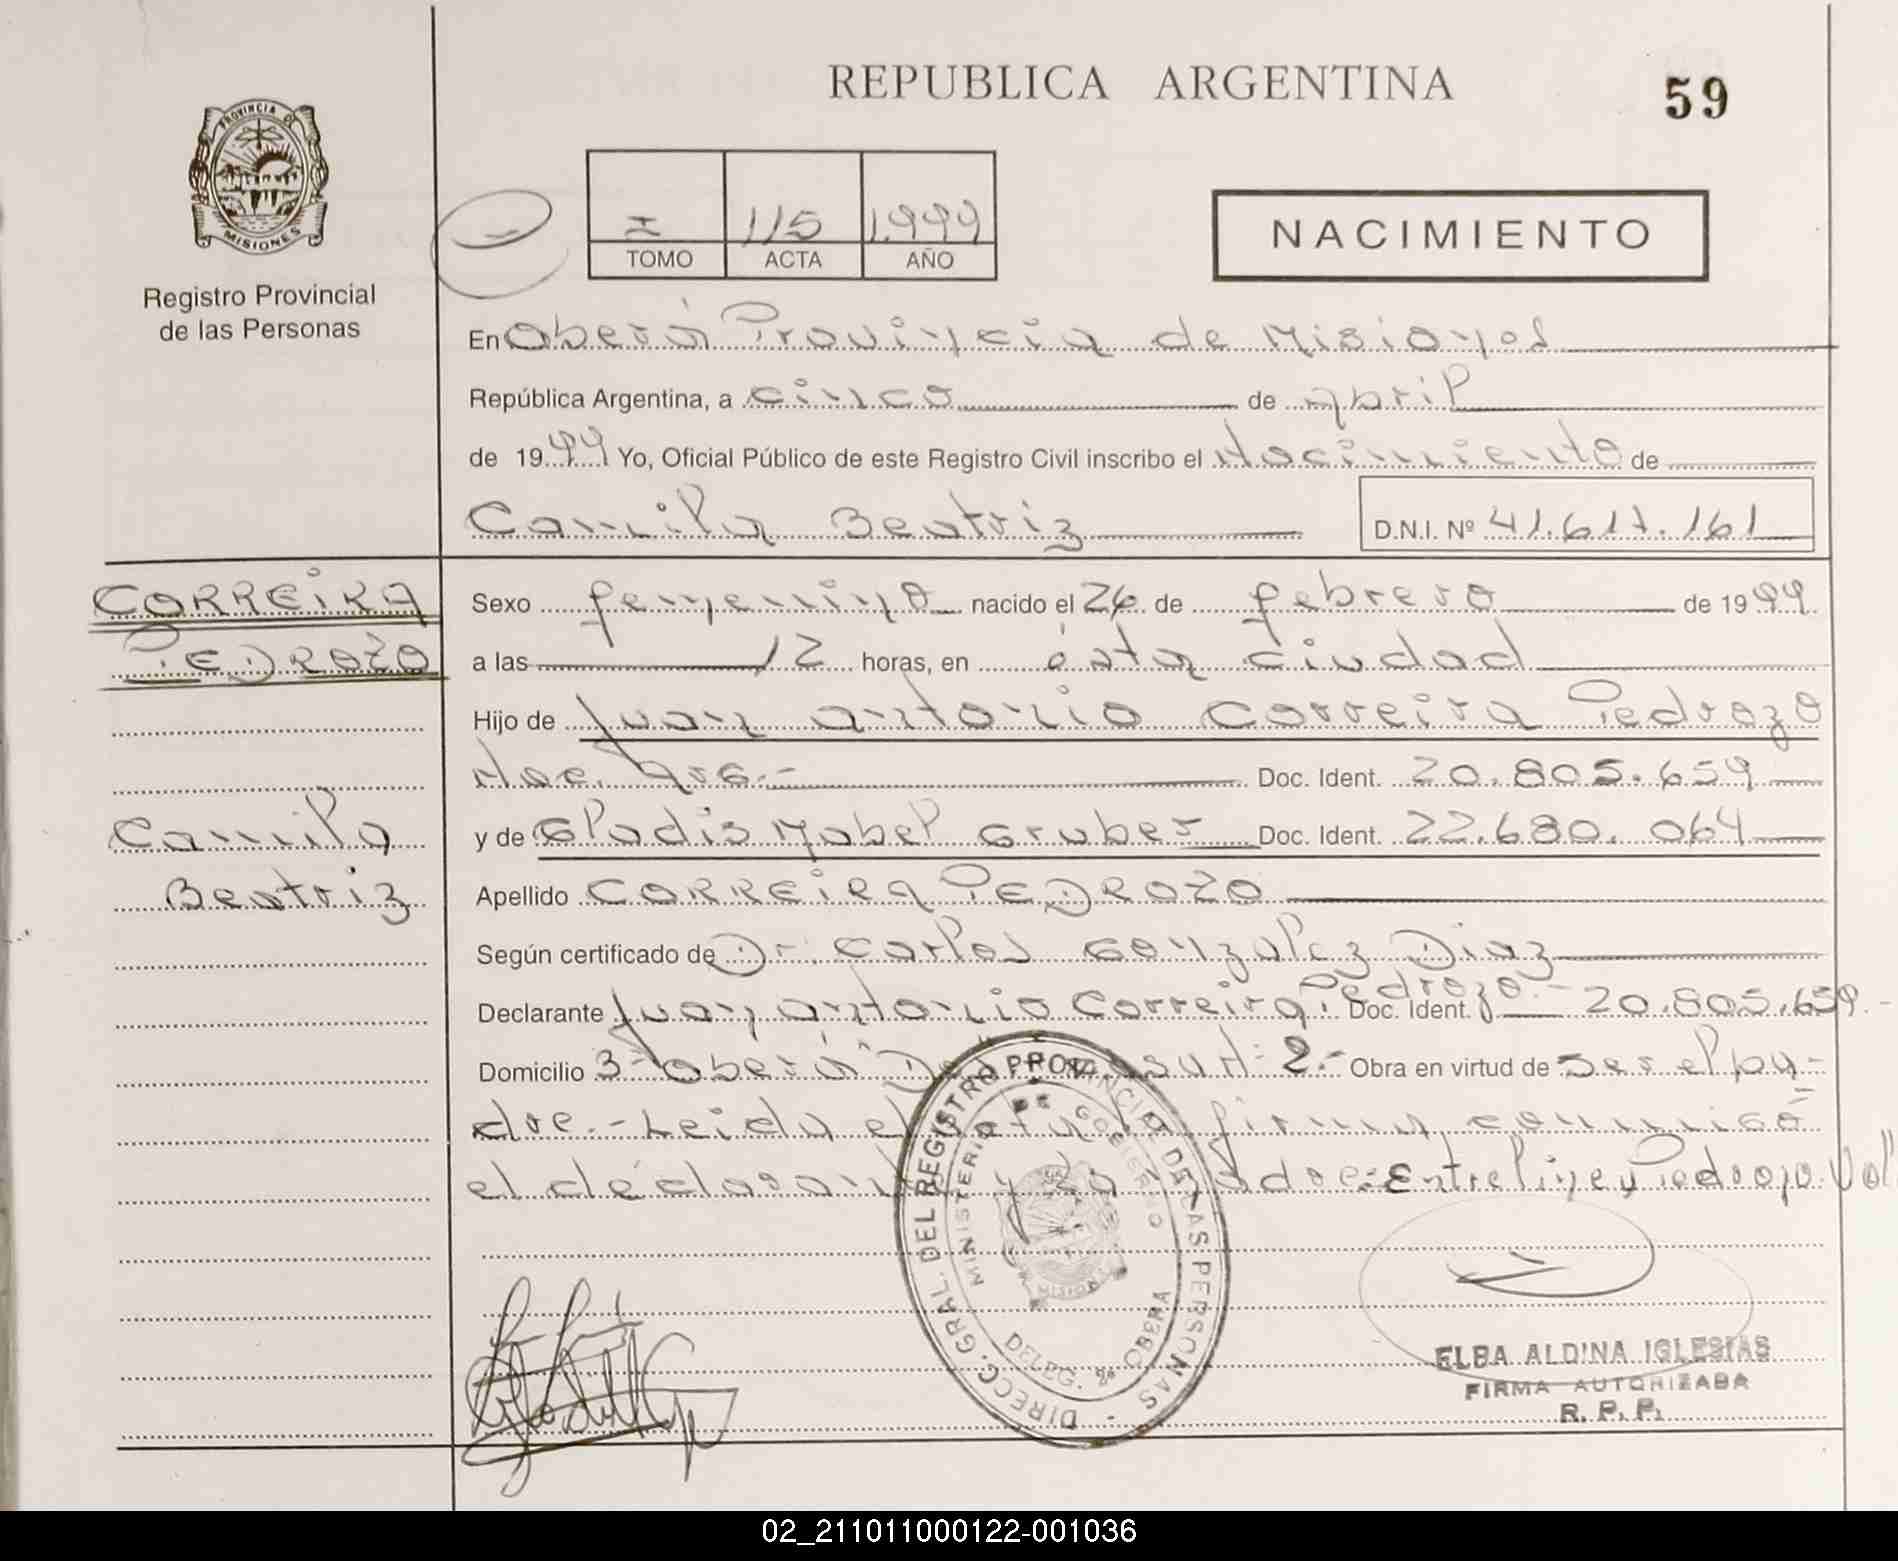 REPUBLICA ARGENTINA
59
PROVINCIA DE
MISIONES
Registro Provincial
de las Personas
I 115 1.999
TOMO ACTA AÑO
NACIMIENTO
En Oberá Provincia de Misiones
República Argentina, a cinco de abril
de 1999 Yo, Oficial Público de este Registro Civil inscribo el Nacimiento de
Camila Beatriz D.N.I. Nº 41.617.161
CORREIRA
PEDROZO
Camila
Beatriz
Sexo femenino nacido el 26 de febrero de 1999
a las 12 horas, en ésta ciudad
Hijo de Juan Antonio Correira Pedrozo
Nac. Arg.- Doc. Ident. 20.805.659
y de Gladis Mabel Gruber Doc. Ident. 22.680.064
Apellido CORREIRA PEDROZO
Según certificado de Dr. Carlos Gonzalez Diaz
Declarante Juan Antonio Correira Pedrozo.- Doc. Ident. 20.805.659.-
Domicilio Oberá 2.- Obra en virtud de ser el pa-
dre.- Leida el acta la firma conmigo
el declarante y la madre: Entrelinea Pedrozo. Vol
DIRECC. GRAL. DEL REGISTRO PROVINCIAL DE LAS PERSONAS
MINISTERIO DE GOBIERNO
MISIONES
DELEG. 2º OBERA
ELBA ALDINA IGLESIAS
FIRMA AUTORIZADA
R. P. P.
02_211011000122-001036